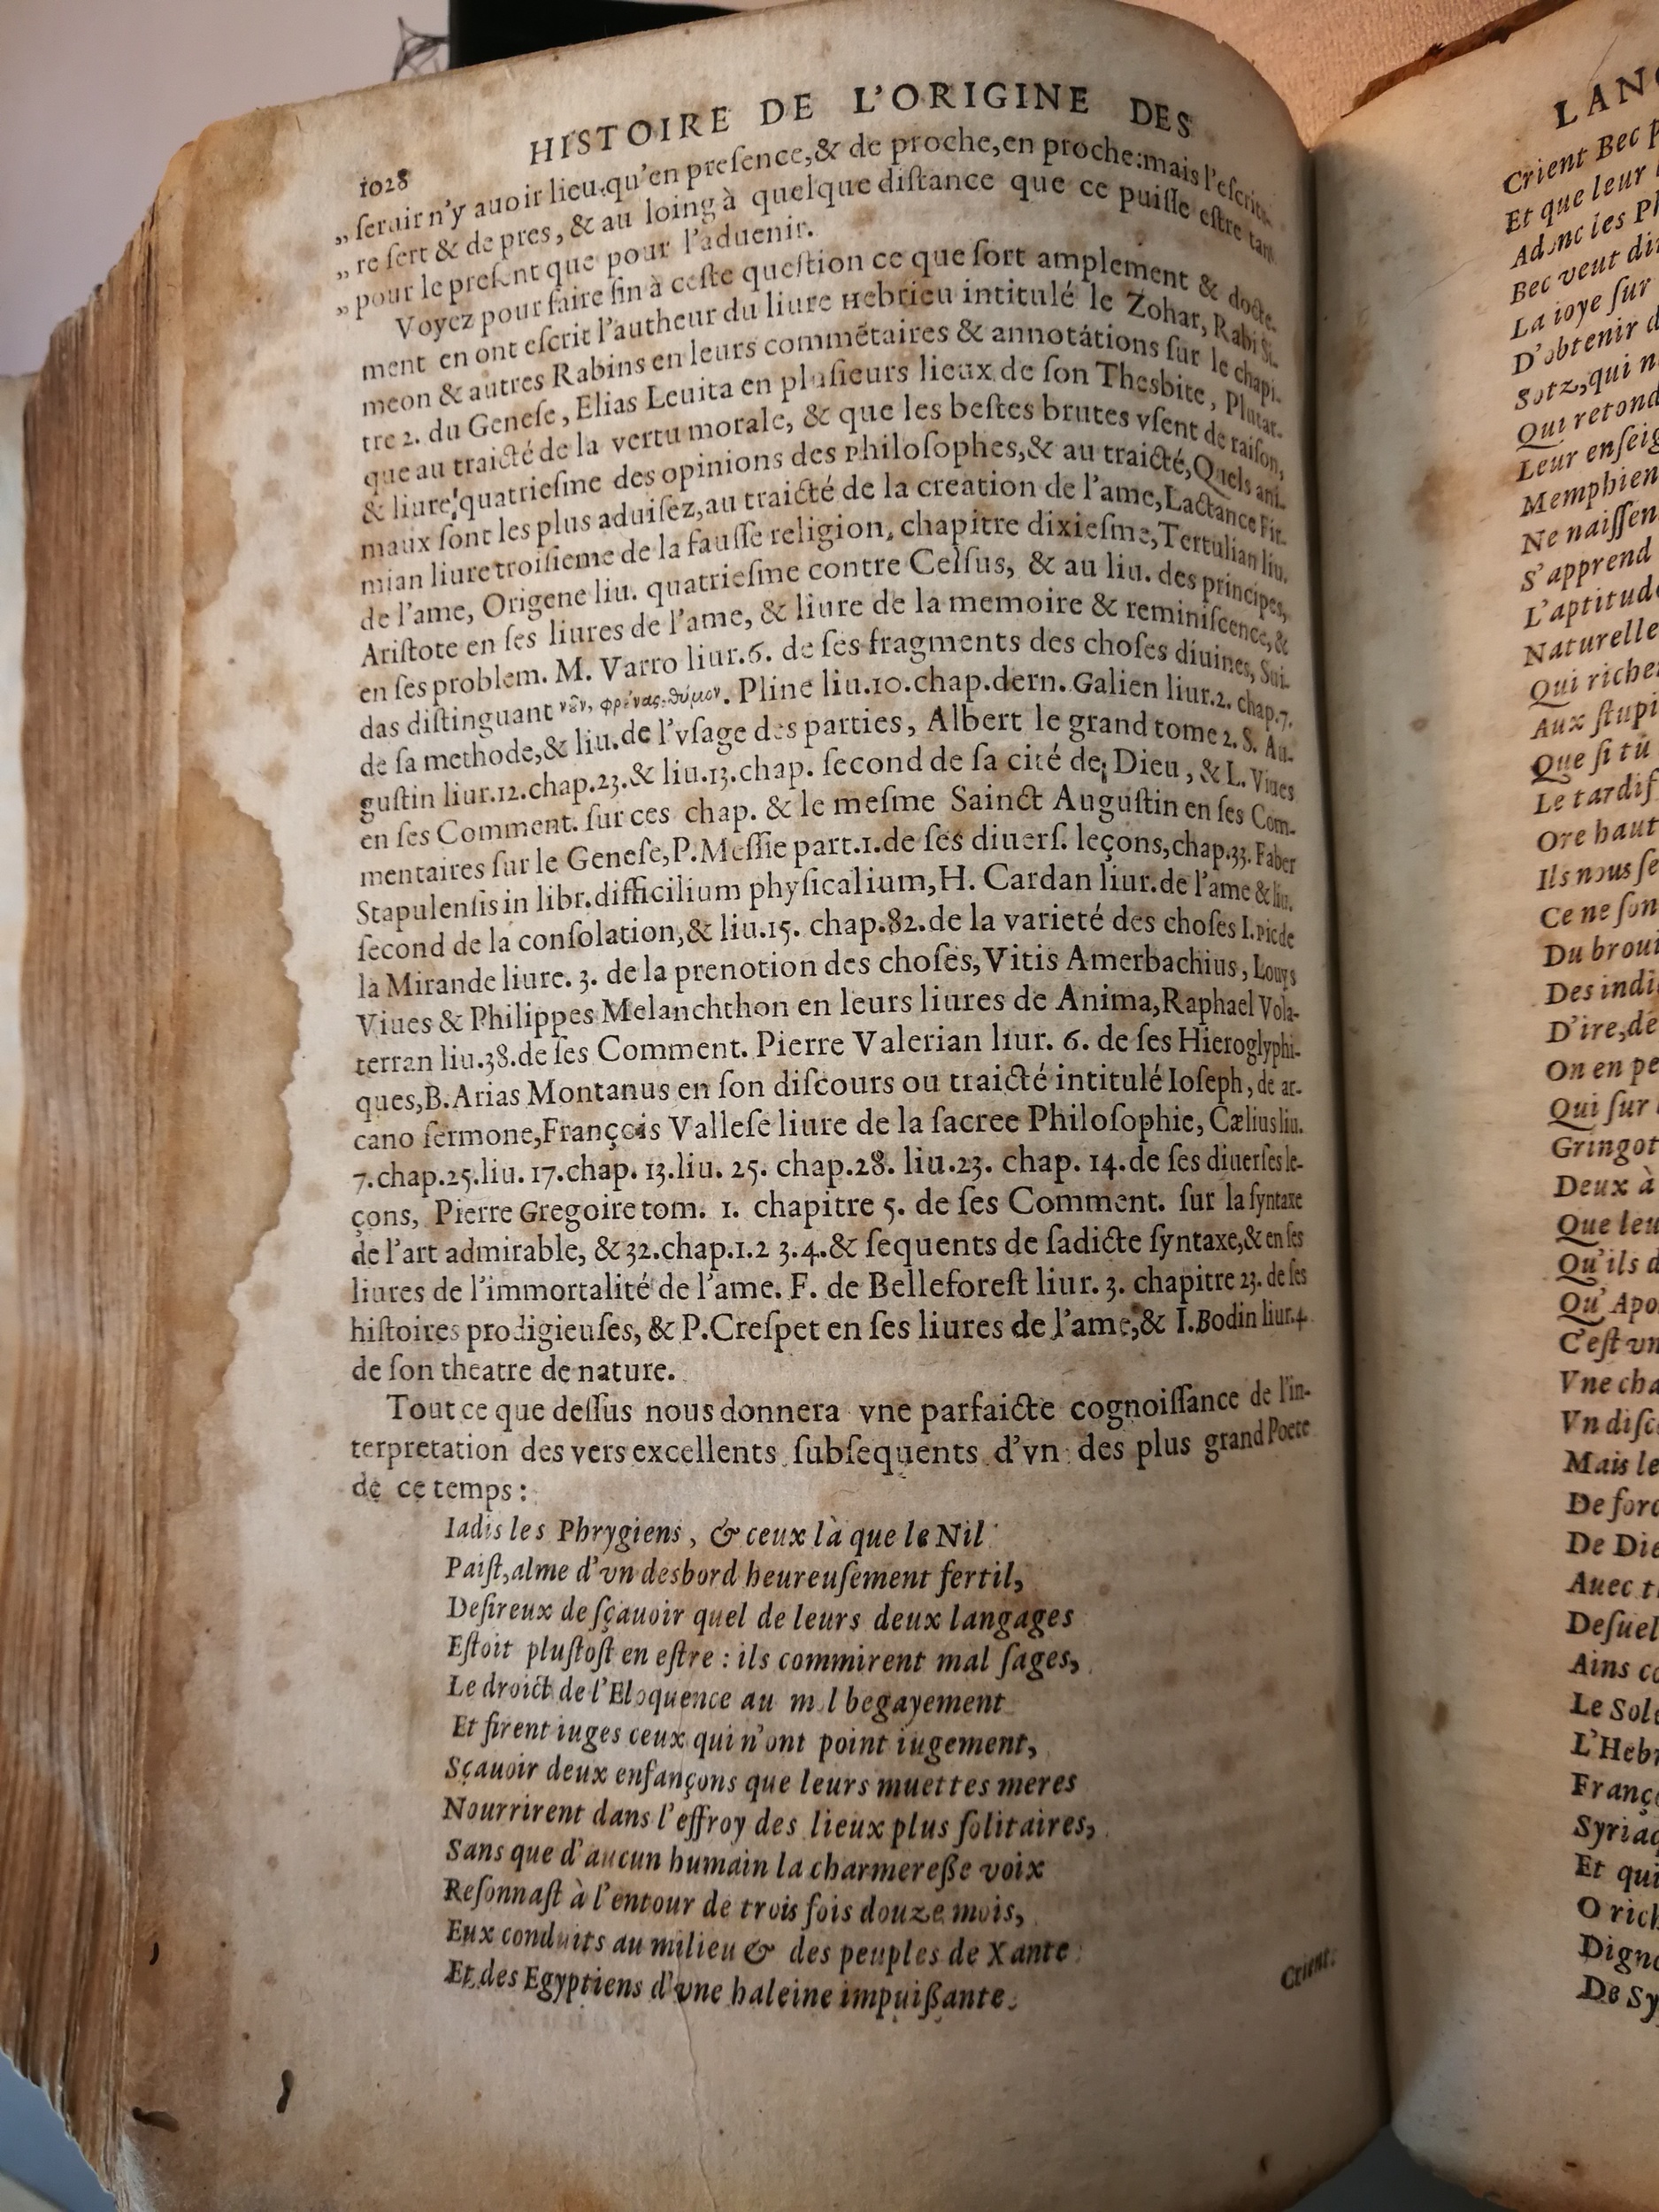 1028 HISTOIRE DE L'ORIGINE DES
„ ſeroit n'y auoir lieu, qu'en preſence, & de proche, en proche: mais l'eſcritu-
„ re ſert & de pres, & au loing à quelque diſtance que ce puiſſe eſtre tant
„ pour le preſent que pour l'aduenir.
Voyez pour faire fin à ceſte queſtion ce que fort amplement & docte-
ment en ont eſcrit l'autheur du liure Hebrieu intitulé le Zohar, Rabi Si-
meon & autres Rabins en leurs commẽtaires & annotátions ſur le chapi-
tre 2. du Geneſe, Elias Leuita en pluſieurs lieux de ſon Thesbite, Plutar-
que au traicté de la vertu morale, & que les beſtes brutes vſent de raiſon,
& liure quatrieſme des opinions des Philoſophes, & au traicté, Quels ani-
maux ſont les plus aduiſez, au traicté de la creation de l'ame, Lactance Fir-
mian liure troiſieme de la fauſſe religion, chapitre dixieſme, Tertulian liu.
de l'ame, Origene liu. quatrieſme contre Celſus, & au liu. des principes,
Ariſtote en ſes liures de l'ame, & liure de la memoire & reminiſcence, &
en ſes problem. M. Varro liur. 6. de ſes fragments des choſes diuines, Sui-
das diſtinguant νοῦν, φρένας, θύμον. Pline liu. 10. chap. dern. Galien liur. 2. chap. 7.
de ſa methode, & liu. de l'vſage des parties, Albert le grand tome 2. S. Au-
guſtin liur. 12. chap. 23. & liu. 13. chap. ſecond de ſa cité de Dieu, & L. Viues
en ſes Comment. ſur ces chap. & le meſme Sainct Auguſtin en ſes Com-
mentaires ſur le Geneſe, P. Meſſie part. 1. de ſes diuerſ. leçons, chap. 33. Faber
Stapulenſis in libr. difficilium phyſicalium, H. Cardan liur. de l'ame & liu.
ſecond de la conſolation, & liu. 15. chap. 82. de la varieté des choſes I. Pic de
la Mirande liure. 3. de la prenotion des choſes, Vitis Amerbachius, Louys
Viues & Philippes Melanchthon en leurs liures de Anima, Raphael Vola-
terran liu. 38. de ſes Comment. Pierre Valerian liur. 6. de ſes Hieroglyphi-
ques, B. Arias Montanus en ſon diſcours ou traicté intitulé Ioſeph, de ar-
cano ſermone, François Valleſe liure de la ſacree Philoſophie, Cælius liu.
7. chap. 25. liu. 17. chap. 13. liu. 25. chap. 28. liu. 23. chap. 14. de ſes diuerſes le-
çons, Pierre Gregoire tom. 1. chapitre 5. de ſes Comment. ſur la ſyntaxe
de l'art admirable, & 32. chap. 1. 2 3. 4. & ſequents de ſadicte ſyntaxe, & en ſes
liures de l'immortalité de l'ame. F. de Belleforeſt liur. 3. chapitre 23. de ſes
hiſtoires prodigieuſes, & P. Creſpet en ſes liures de l'ame, & I. Bodin liur. 4
de ſon theatre de nature.
Tout ce que deſſus nous donnera vne parfaicte cognoiſſance de l'in-
terpretation des vers excellents ſubſequents d'vn des plus grand Poete
de ce temps:
Iadis les Phrygiens, & ceux là que le Nil
Paiſt, alme d'vn desbord heureuſement fertil,
Deſireux de ſçauoir quel de leurs deux langages
Eſtoit pluſtoſt en eſtre: ils commirent mal ſages,
Le droict de l'Eloquence au mal begayement
Et firent iuges ceux qui n'ont point iugement,
Sçauoir deux enfançons que leurs muettes meres
Nourrirent dans l'effroy des lieux plus ſolitaires,
Sans que d'aucun humain la charmereſſe voix
Reſonnaſt à l'entour de trois fois douze mois,
Eux conduits au milieu & des peuples de Xante
Et des Egyptiens d'vne haleine impuiſſante.
Crient.
LANG
Crient Bec
Et que leur
Adonc les Ph
Bec veut di
La ioye ſur
D'obtenir d
Sotz, qui n
Qui retond
Leur enſeig
Memphien
Ne naiſſen
S'apprend
L'aptitude
Naturelle
Qui riche
Aux ſtupi
Que ſi tu
Le tardif
Ore haut
Ils nous ſe
Ce ne ſon
Du broui
Des indi
D'ire, de
On en pe
Qui ſur
Gringot
Deux à
Que leu
Qu'ils d
Qu'Apo
C'eſt vn
Vne cha
Vn diſc
Mais le
De forc
De Die
Auec t
Deſuel
Ains co
Le Sole
L'Hebr
Franço
Syriaq
Et qui
O rich
Digne
De Sy